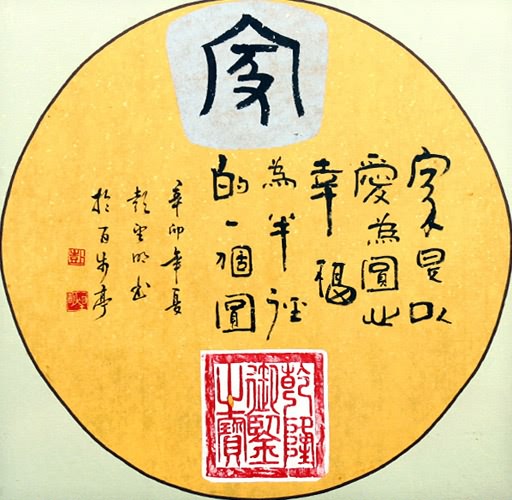 家
家是以
愛為圓心
幸福
為半徑
的一個圓
辛卯年夏
彭明书
於百步亭
彭
乾隆
御覽
之寶